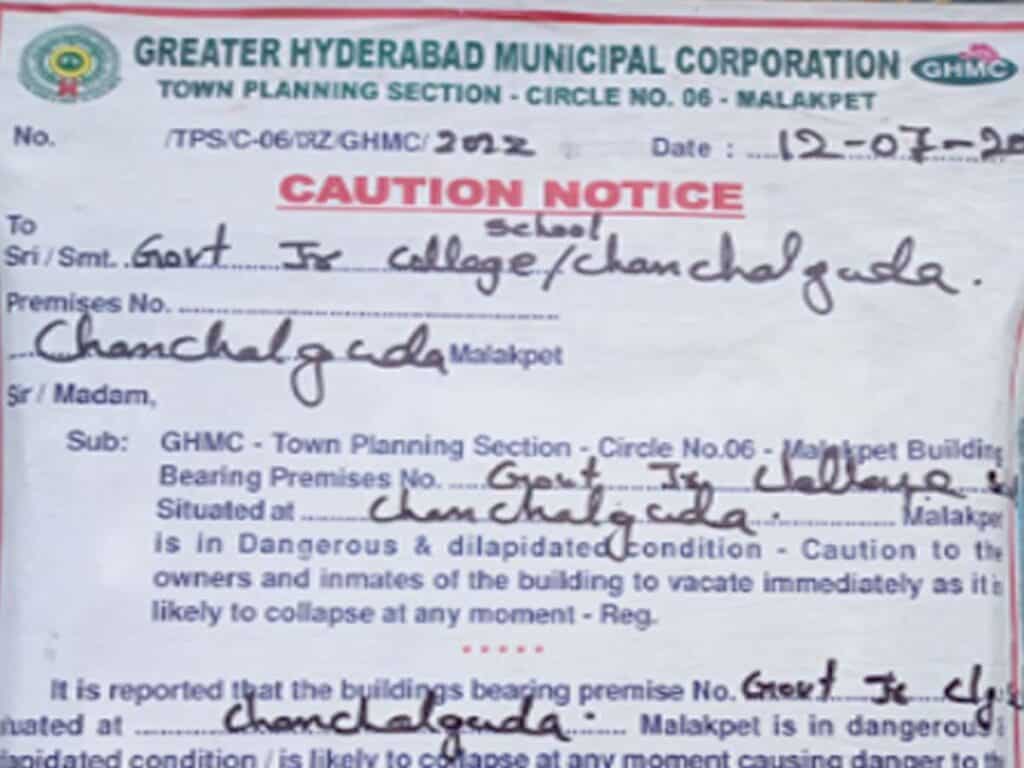 GREATER HYDERABAD MUNICIPAL CORPORATION
GHMC
TOWN PLANNING SECTION - CIRCLE NO. 06 - MALAKPET
No. /TPS/C-06/DZ/GHMC/ 2022 Date : 12-07-20
CAUTION NOTICE
To
school
Sri / Smt. Govt Jr College/Chanchalguda.
Premises No.
Chanchalguda Malakpet
Sir / Madam,
Sub: GHMC - Town Planning Section - Circle No.06 - Malakpet Building
Bearing Premises No. Govt Jr College
Situated at Chanchalguda. Malakpet
is in Dangerous & dilapidated condition - Caution to the
owners and inmates of the building to vacate immediately as it is
likely to collapse at any moment - Reg.
*****
It is reported that the buildings bearing premise No. Govt Jr Clg
uated at Chanchalguda. Malakpet is in dangerous
lapidated condition / is likely to collapse at any moment causing danger to th